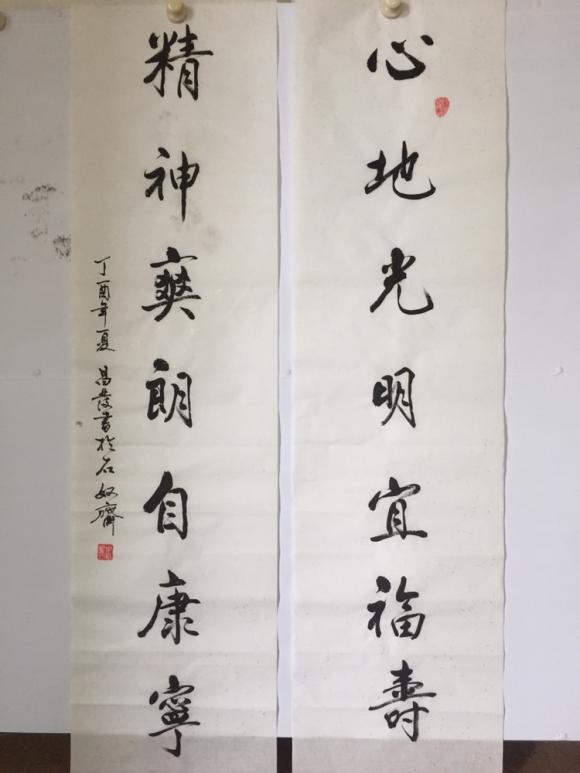 心地光明宜福壽
精神爽朗自康寧
丁酉年夏 昌發書於石奴齋